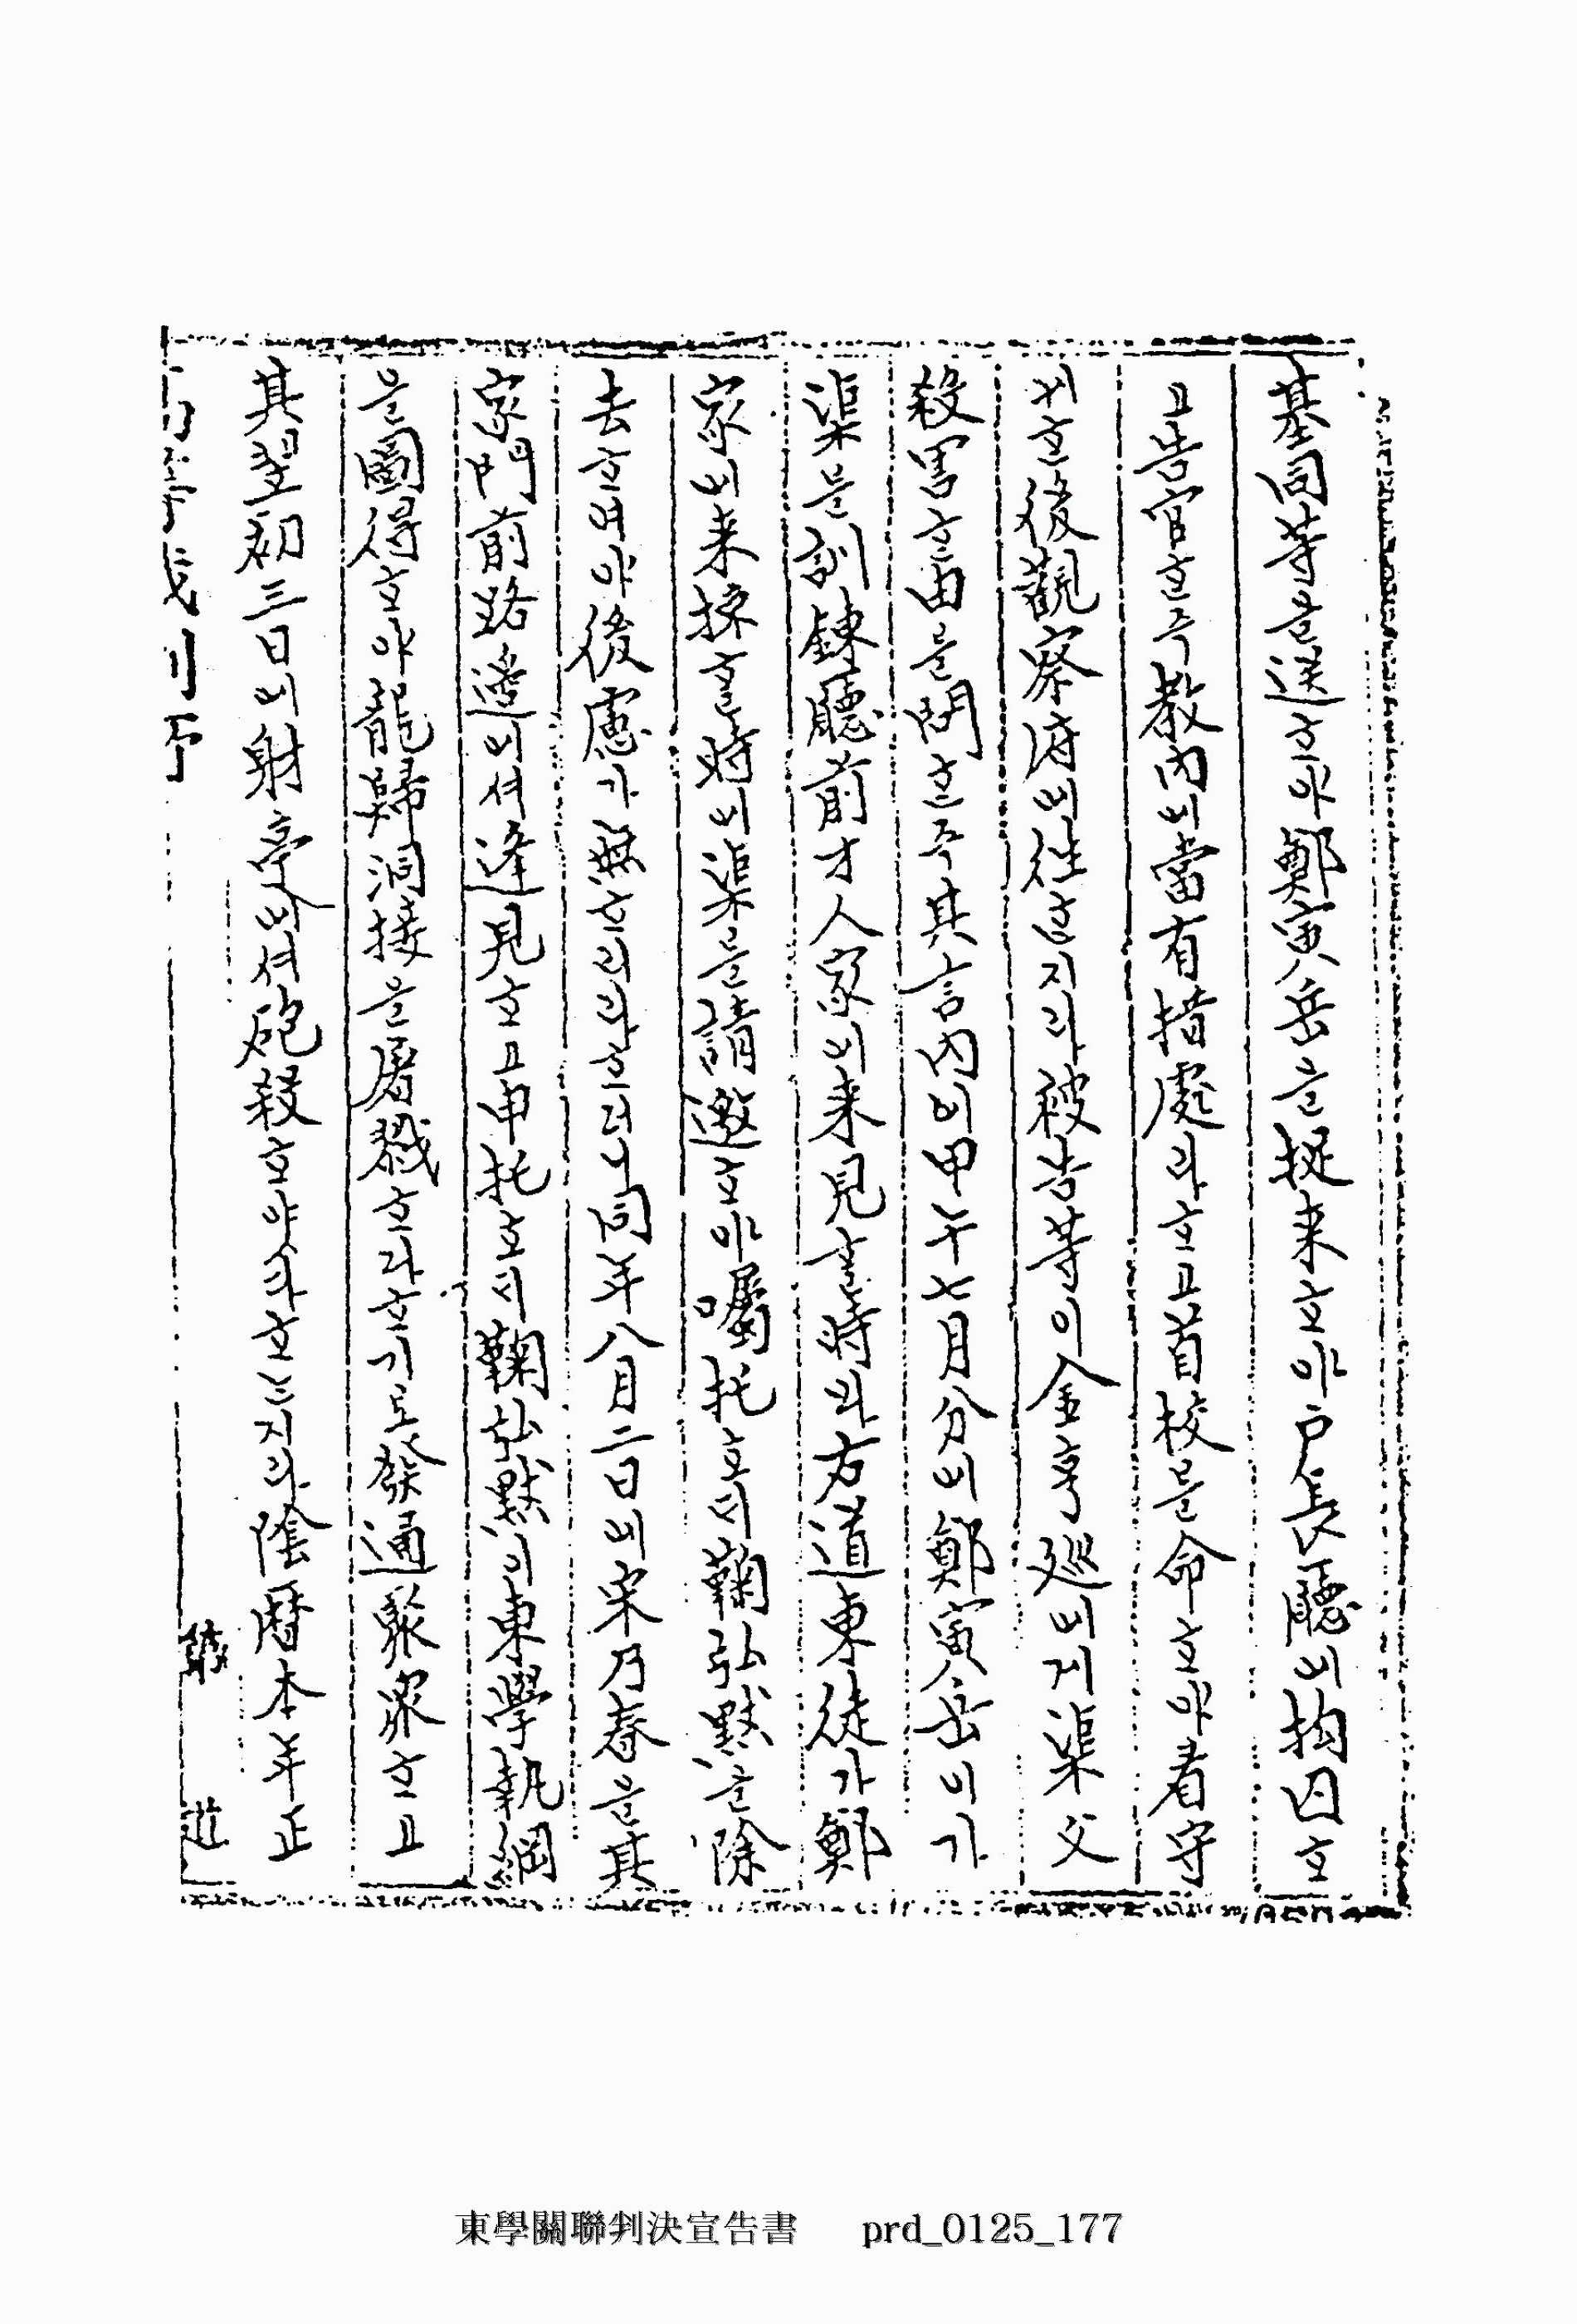 基同等을送ᄒᆞ야鄭寅岳을捉來ᄒᆞ야戶長廳의拘囚ᄒᆞ
고告官ᄒᆞᆫ즉敎內의當有措處라ᄒᆞ고首校을命ᄒᆞ야着守
ᄒᆞᆫ後觀察府의往ᄒᆞᆷ지라被告等이金亨巡의게渠父
殺害ᄒᆞᆫ由을問ᄒᆞᆫ즉其言內의甲午七月分의鄭寅岳의가
渠을訓鍊廳前才人家의來見ᄒᆞᆯ時의右道東徒가鄭
家의來探ᄒᆞᆯ時의渠을請邀ᄒᆞ야囑托ᄒᆞ되鞠弘默을除
去ᄒᆞ여야後慮가無ᄒᆞ리라ᄒᆞ더니同年八月二日의宋乃春을其
家門前路邊의셔逢見ᄒᆞ고申托ᄒᆞ되鞠弘默이東學執綱
을圖得ᄒᆞ야龍歸洞接을屠戮ᄒᆞ랴ᄒᆞ기로發通聚衆ᄒᆞ고
其翌初三日의射亭의셔砲殺ᄒᆞ야다ᄒᆞᄂᆞᆫ지라陰曆本年正
東學關聯判決宣告書 prd_0125_177